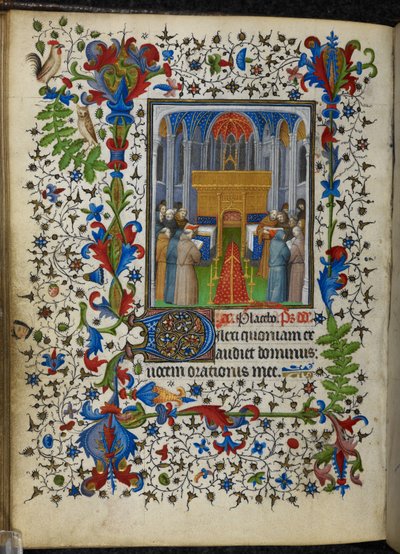 a. Placebo. Ps.
Dilexi quoniam ex
audiet dominus
uocem orationis mee.